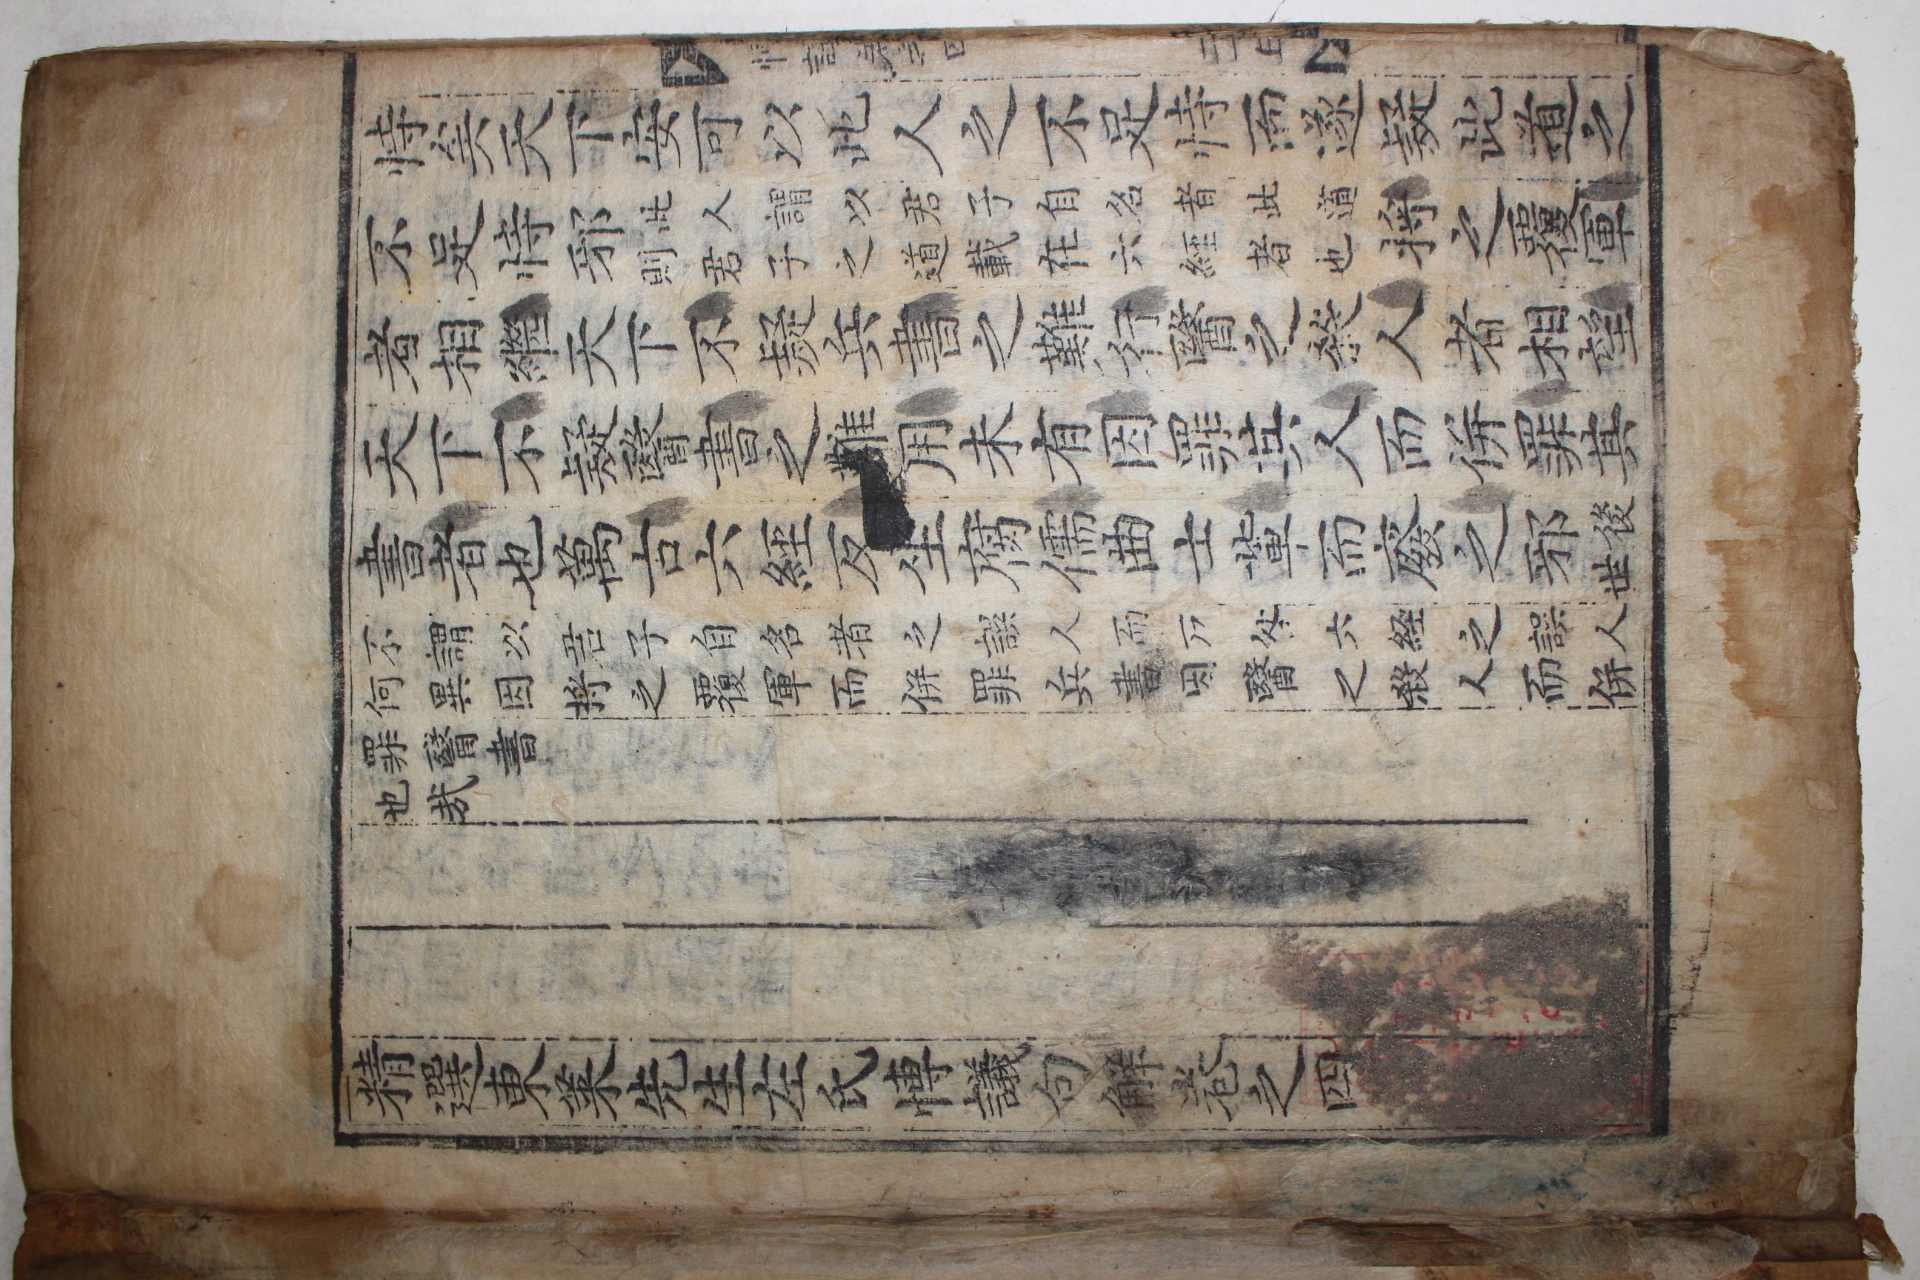 恃矣天下安可以此人之不足恃而遂疑此道之
不足恃邪此人謂以君子自名者此道
則君子之道載在六經者也將之覆軍
者相繼天下不疑兵書之難行醫之殺人者相望
天下不疑醫書之難用未有因罪其人而併罪其
書者也萬古六經反坐腐儒曲士輩而廢之邪後
世
不謂以君子自名者之誤人而乃咎六経之誤人
何異因將之覆軍而併罪兵書因醫之殺人而併
罪醫書
也㦲
精選東萊先生左氏博議句解卷之四